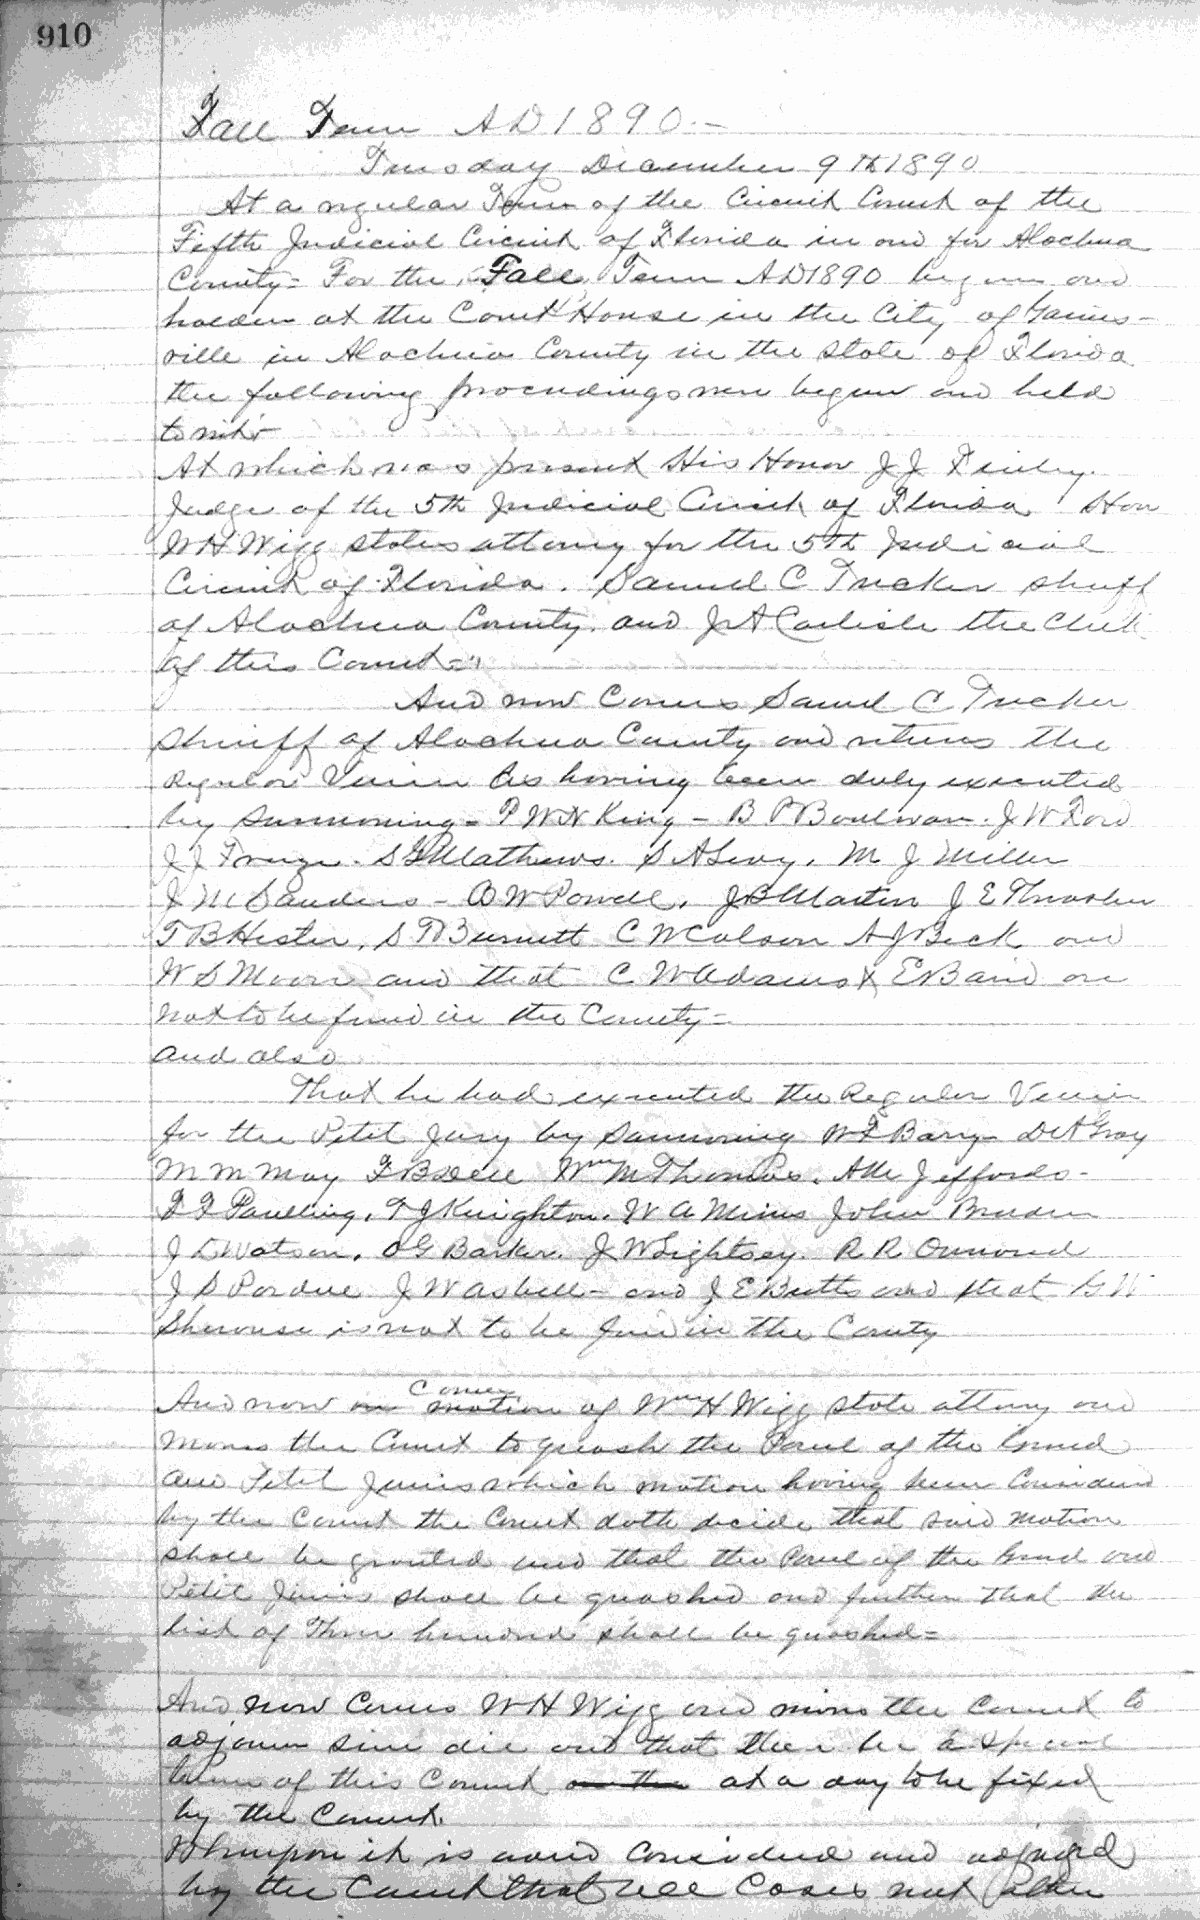 910
Fall Term AD 1890.—
Tuesday December 9th 1890
At a regular Term of the Circuit Court of the
Fifth Judicial Circuit of Florida in and for Alachua
County = For the Fall Term AD 1890 begun and
holden at the Court House in the City of Gaines-
ville in Alachua County in the State of Florida
the following proceedings were begun and held
to wit:
At which was present His Honor J J Finley.
Judge of the 5th Judicial Circuit of Florida Hon
W H Wigg states attorney for the 5th Judicial
Circuit of Florida. Samuel C Tucker sheriff
of Alachua County. and J A Carlisle the Clerk
of this Court =
And now Comes Samuel C Tucker
Sheriff of Alachua County and returns the
Regular Venire as having been duly executed
by summoning = P W N King - B P Boulware. J W Ford
J J Mathews. S A Levy. M J Miller
J M Sanders - B W Powell. J B Martin J E Thrasher
T B Hester, S T Burnett C W Colson A J Beck and
W S Moore and that C W Adams & E Baird are
not to be found in the County =
and also
That he had executed the Regular Venire
for the Petit Jury by Summoning W F Barry D A Gray
M M May F B Dell Wm M Thomas. A M Jeffords -
F F Paulling. T J Knighton. W A Mims John
J L Watson. O G Barker. J W Lightsey. R R Ormond
J S Pardue J W Asbell - and J E Butts and that G W
Sherouse is not to be found in the County
Comes
And now on motion of Wm H Wigg state attorny and
Moves the Court to quash the Panel of the Grand
and Petit Juries which motion having been Considered
by the Court the Court doth decide that said motion
shall be granted and that the Panel of the Grand and
Petit Juries shall be quashed and further that the
list of Three hundred shall be quashed =
And now Comes W H Wigg and moves the Court to
adjourn sine die and that there be a special
term of this Court on the at a day to be fixed
by the Court.
Whereupon it is Considered and adjudged
by the Court that all Cases not